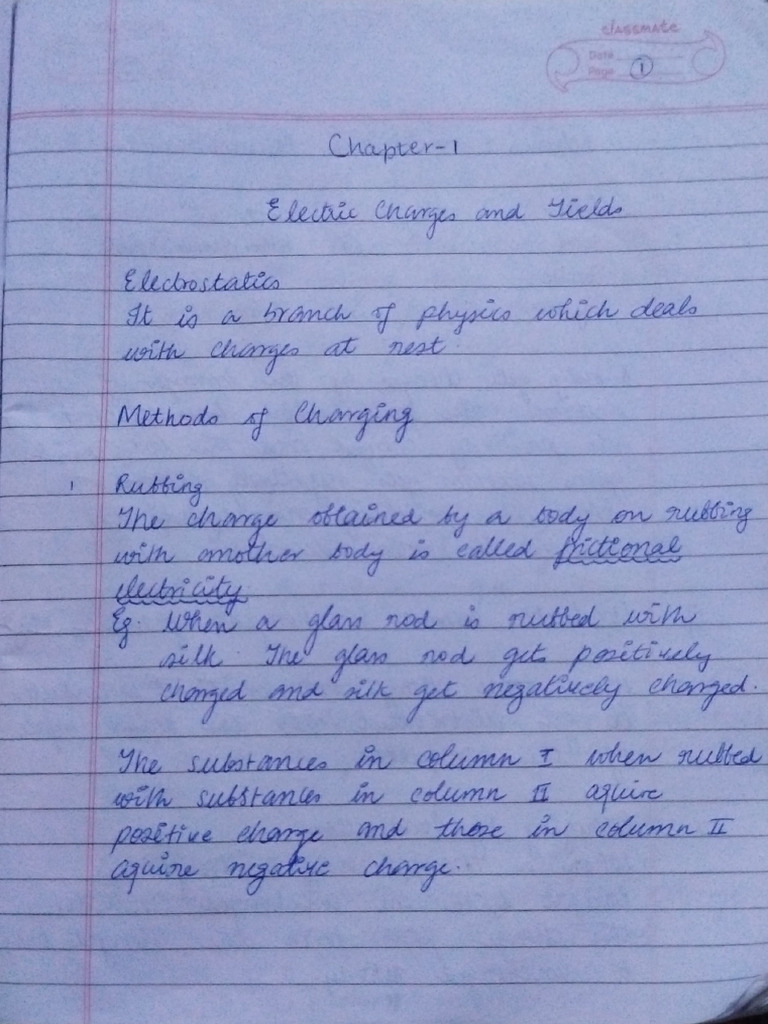 classmate
Date
Page 1
Chapter-1
Electric Charges and Fields
Electrostatics
It is a branch of physics which deals
with charges at rest.
Methods of Charging
1 Rubbing
The charge obtained by a body on rubbing
with another body is called frictional
electricity
Eg. When a glass rod is rubbed with
silk. The glass rod gets positively
charged and silk get negatively charged.
The substances in column I when rubbed
with substances in column II aquire
positive charge and those in column II
aquire negative charge.